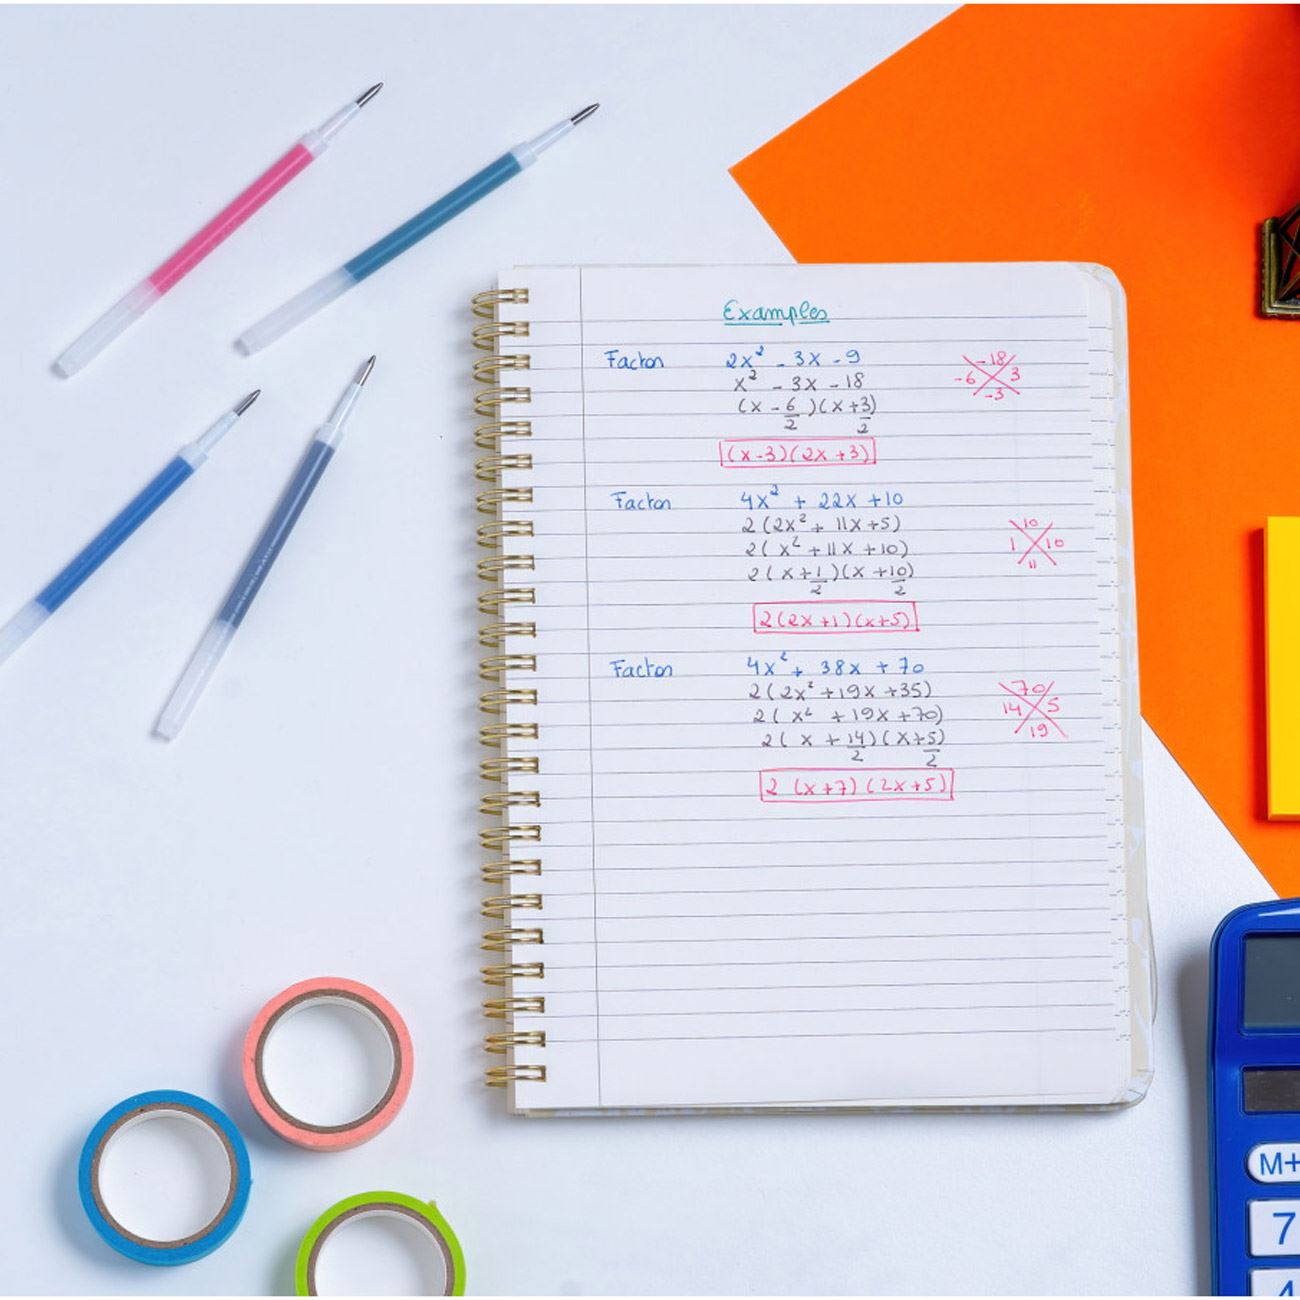 Examples
Factor 2x² - 3x - 9
x² - 3x - 18
(x - 6/2)(x + 3/2)
(x-3)(2x+3)
-18
-6 3
-3
Factor 4x² + 22x + 10
2(2x² + 11x + 5)
2(x² + 11x + 10)
2(x + 1/2)(x + 10/2)
2(2x+1)(x+5)
10
1 10
11
Factor 4x² + 38x + 70
2(2x² + 19x + 35)
2(x² + 19x + 70)
2(x + 14/2)(x + 5/2)
2 (x+7)(2x+5)
70
14 5
19
M+
7
4